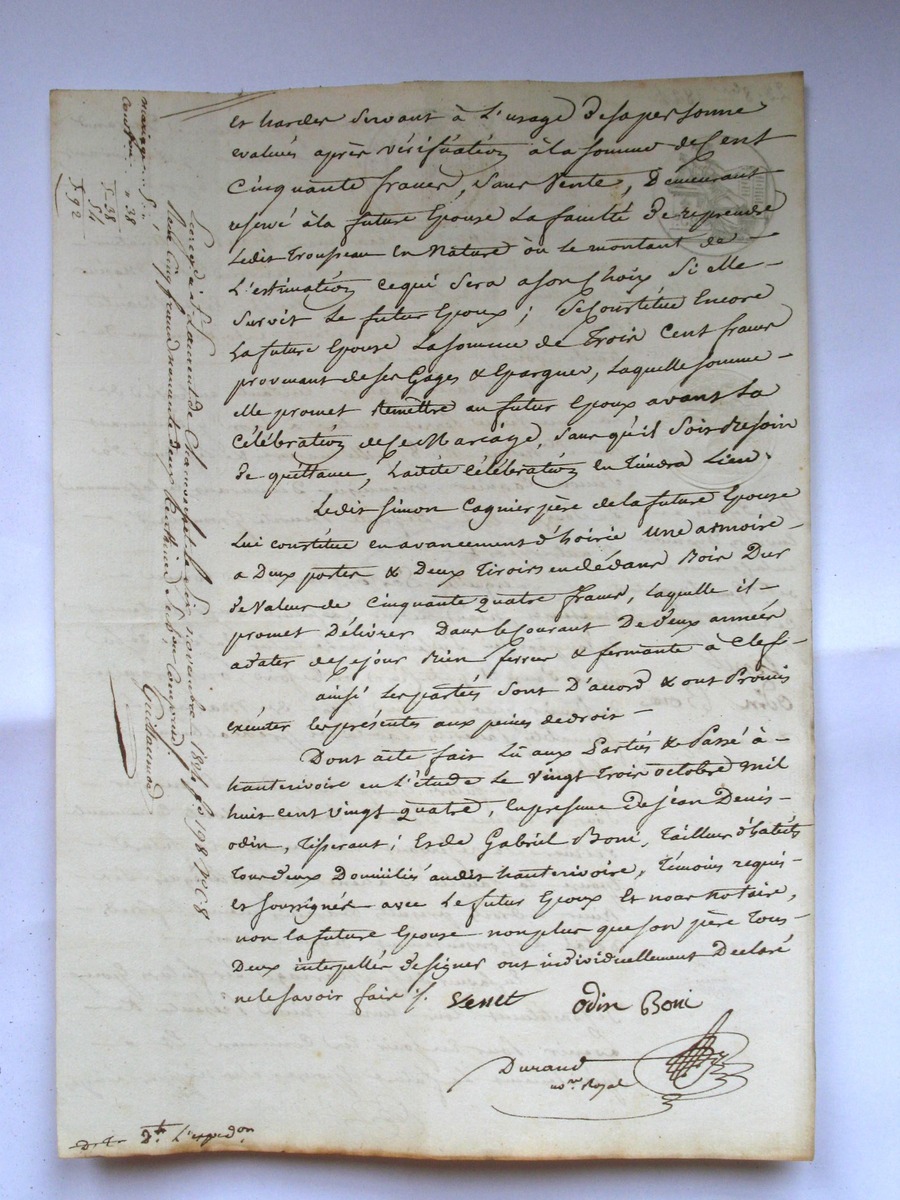 et hardes servant à L'usage desa personne
evalués après vérification àla somme de Cent
Cinquante francs, sans Vente, Demeurant
reservé àla future Epouse La faculté de reprendre
Ledit Trousseau En Nature ou le montant de
L'estimation cequi sera ason Choix si elle
survit Le futur Epoux; se Constitue Encore
La future Epouse Lasomme de Trois Cent francs
provenant deses Gages & Epargnes, Laquelle somme
elle promet remettre au futur Epoux avant La
Célébration de ce Mariage, sans qu'il soit Besoin
de quittance, Ladite Célébration En Tiendra Lieu.
Ledit Simon Cognier père de la future Epouse
Lui constitue en avancement d'hoirie une armoire
a Deux portes & Deux Tiroirs endédans Bois Dur
de Valeur de Cinquante quatre francs, laquelle il
promet Délivrer Dans le Courant De deux années
adater de ce jour Bien ferrée & fermante à Clef
ainsi Les parties sont D'acord & ont Promis
exécuter les présentes aux peines de droit
Dont acte fait Lû aux Parties & Passé à
hauterivoire en L'étude Le Vingt Trois octobre mil
huit cent vingt quatre, En présence de jean Denis
odin, Tisserant; Et de Gabriel Boni, Tailleur d'habits
Tous deux Domiciliés audit hauterivoire, Témoins requis
Et soussignés avec Le futur Epoux Et nous notaire,
non La future Epouse non plus que son père Tous
Deux interpellés de signer ont individuellement Declaré
ne le savoir faire ./.
Venet odin Boni
Durand
no.re Royal
D.t L'exped.on
mariage
Const.on 2 38
5 38
54
5 92
Enreg.é à St Laurent de Chamousset le six novembre 1824 f.o 198 V.o C 8
Reçu Cinq francs nonante deux centimes Sub.on Comprise.
Guillaumod